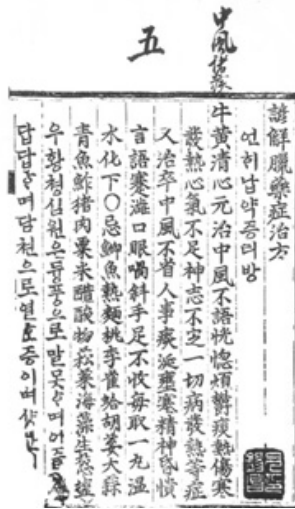 中風諸症
五
諺解臘藥症治方
언ᄒᆡ납약증티방
牛黃清心元治中風不語恍惚煩鬱痰熱傷寒
發熱心氣不足神志不定一切病發熱等症
又治卒中風不省人事痰涎壅塞精神昏憒
言語蹇澁口眼喎斜手足不收每取一丸溫
水化下○忌鯽魚熱麵桃李雀蛤胡荽大蒜
青魚鮓猪肉粟米醋酸物菘菜海藻生葱
우황쳥심원은듕풍으로말못ᄒᆞ며어즐
답답ᄒᆞ며담쳔으로열증이며샹한